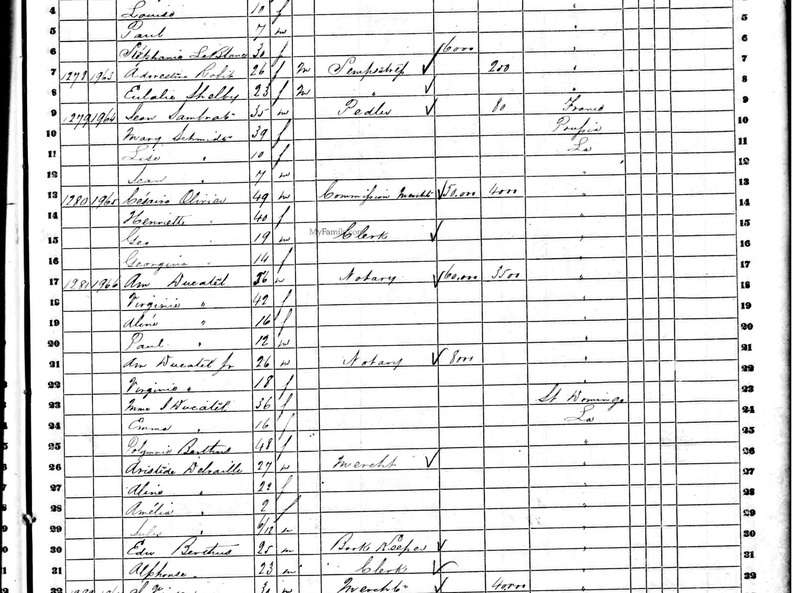 4 Louise 10 f " 4
5 Paul 7 m " 5
6 Stéphanie LeBlanc 30 f 6000 " 6
7 1278 1963 26 f M Sempstress 200 " 7
8 Eulalie Shelby 23 f M " " 8
9 1279 1964 Jean 35 m Pedler 80 France 9
10 Mary Schmidt 39 f Prussia 10
11 Lise " 10 f La 11
12 Jean " 7 m " 12
13 1280 1965 Césaire Olivier 49 m Commission Mercht 50,000 4000 " 13
14 Henriette " 40 f " 14
15 Geo " 19 m Clerk " 15
MyFamily.com
16 Georgina " 14 f " 16
17 1281 1966 Am Ducatel 56 m Notary 60,000 3500 " 17
18 Virginie " 42 f " 18
19 Aline " 16 f " 19
20 Paul " 12 m " 20
21 Am Ducatel Jr 26 m Notary 8000 " 21
22 Virginie " 18 f " 22
23 Mme J Ducatel 36 f St Domingo 23
24 Emma " 16 f La 24
25 Berthus 48 f " 25
26 Aristide 27 m Mercht " 26
27 Aline " 22 f " 27
28 Amélia " 2 f " 28
29 Jules " /12 m " 29
30 Edw Berthus 25 m Book Keeper " 30
31 Alphonse " 23 m Clerk " 31
32 m Mercht 4000 " 32